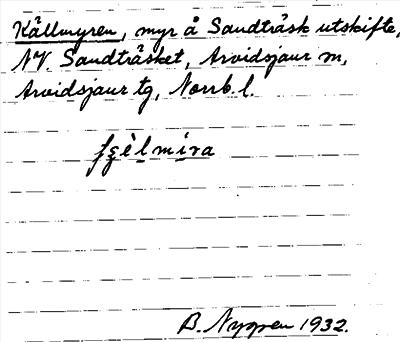 Källmyren, myr å Sandträsk utskifte,
NV. Sandträsket, Arvidsjaur sn,
Arvidsjaur tg, Norrb. l.
B. Nygren 1932.